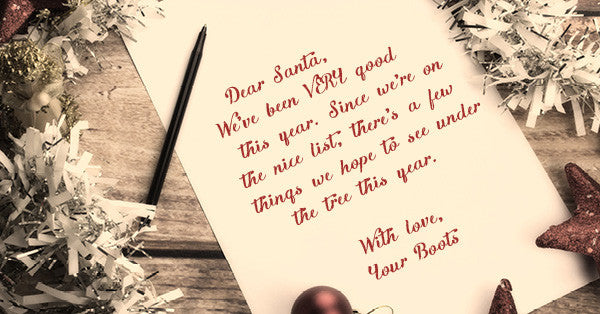 Dear Santa,
We've been VERY good
this year. Since we're on
the nice list, there's a few
things we hope to see under
the tree this year.
With love,
Your Boots